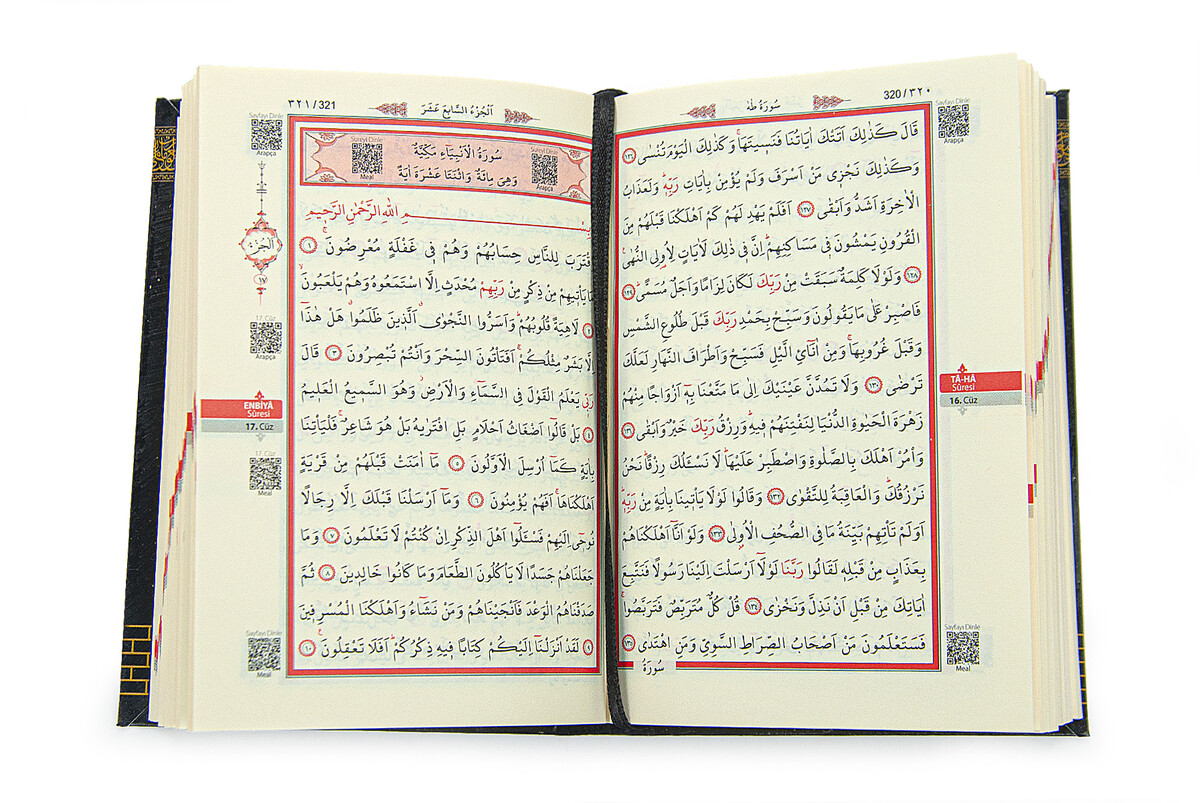 320/٣٢٠
سُورَةُ طٰهٰ
Sayfayı Dinle
Arapça
قَالَ كَذٰلِكَ اَتَتْكَ اٰيَاتُنَا فَنَسٖيتَهَاۚ وَكَذٰلِكَ الْيَوْمَ تُنْسٰى ﴿١٢٦﴾
وَكَذٰلِكَ نَجْزٖي مَنْ اَسْرَفَ وَلَمْ يُؤْمِنْ بِاٰيَاتِ رَبِّهٖۜ وَلَعَذَابُ
الْاٰخِرَةِ اَشَدُّ وَاَبْقٰى ﴿١٢٧﴾ اَفَلَمْ يَهْدِ لَهُمْ كَمْ اَهْلَكْنَا قَبْلَهُمْ مِنَ
الْقُرُونِ يَمْشُونَ فٖي مَسَاكِنِهِمْۜ اِنَّ فٖي ذٰلِكَ لَاٰيَاتٍ لِاُو۬لِي النُّهٰى۟
﴿١٢٨﴾ وَلَوْلَا كَلِمَةٌ سَبَقَتْ مِنْ رَبِّكَ لَكَانَ لِزَامًا وَاَجَلٌ مُسَمًّىۜ ﴿١٢٩﴾
فَاصْبِرْ عَلٰى مَا يَقُولُونَ وَسَبِّحْ بِحَمْدِ رَبِّكَ قَبْلَ طُلُوعِ الشَّمْسِ
وَقَبْلَ غُرُوبِهَاۚ وَمِنْ اٰنَٓائِ الَّيْلِ فَسَبِّحْ وَاَطْرَافَ النَّهَارِ لَعَلَّكَ
تَرْضٰى ﴿١٣٠﴾ وَلَا تَمُدَّنَّ عَيْنَيْكَ اِلٰى مَا مَتَّعْنَا بِهٖٓ اَزْوَاجًا مِنْهُمْ
زَهْرَةَ الْحَيٰوةِ الدُّنْيَا لِنَفْتِنَهُمْ فٖيهِۜ وَرِزْقُ رَبِّكَ خَيْرٌ وَاَبْقٰى ﴿١٣١﴾
وَأْمُرْ اَهْلَكَ بِالصَّلٰوةِ وَاصْطَبِرْ عَلَيْهَاۜ لَا نَسْـَٔلُكَ رِزْقًاۜ نَحْنُ
نَرْزُقُكَۜ وَالْعَاقِبَةُ لِلتَّقْوٰى ﴿١٣٢﴾ وَقَالُوا لَوْلَا يَأْتٖينَا بِاٰيَةٍ مِنْ رَبِّهٖۜ
اَوَلَمْ تَأْتِهِمْ بَيِّنَةُ مَا فِي الصُّحُفِ الْاُو۫لٰى ﴿١٣٣﴾ وَلَوْ اَنَّٓا اَهْلَكْنَاهُمْ
بِعَذَابٍ مِنْ قَبْلِهٖ لَقَالُوا رَبَّنَا لَوْلَٓا اَرْسَلْتَ اِلَيْنَا رَسُولًا فَنَتَّبِعَ
اٰيَاتِكَ مِنْ قَبْلِ اَنْ نَذِلَّ وَنَخْزٰى ﴿١٣٤﴾ قُلْ كُلٌّ مُتَرَبِّصٌ فَتَرَبَّصُواۚ
فَسَتَعْلَمُونَ مَنْ اَصْحَابُ الصِّرَاطِ السَّوِيِّ وَمَنِ اهْتَدٰى ﴿١٣٥﴾
سُورَةُ
TÂ-HÂ
Sûresi
16. Cüz
Sayfayı Dinle
Meal
٣٢١/321
اَلْجُزْءُ السَّابِعَ عَشَرَ
Sayfayı Dinle
Arapça
Sûreyi Dinle
Meal
Sûreyi Dinle
Arapça
سُورَةُ الْاَنْبِيَاءِ مَكِّيَّةٌ
وَهِيَ مِائَةٌ وَاثْنَتَا عَشْرَةَ اٰيَةً
بِسْمِ اللّٰهِ الرَّحْمٰنِ الرَّحٖيمِ
اِقْتَرَبَ لِلنَّاسِ حِسَابُهُمْ وَهُمْ فٖي غَفْلَةٍ مُعْرِضُونَۚ ﴿١﴾
مَا يَأْتٖيهِمْ مِنْ ذِكْرٍ مِنْ رَبِّهِمْ مُحْدَثٍ اِلَّا اسْتَمَعُوهُ وَهُمْ يَلْعَبُونَۙ
﴿٢﴾ لَاهِيَةً قُلُوبُهُمْۜ وَاَسَرُّوا النَّجْوٰىۗ اَلَّذٖينَ ظَلَمُواۗ هَلْ هٰذَٓا
اِلَّا بَشَرٌ مِثْلُكُمْۚ اَفَتَأْتُونَ السِّحْرَ وَاَنْتُمْ تُبْصِرُونَ ﴿٣﴾ قَالَ
رَبّٖي يَعْلَمُ الْقَوْلَ فِي السَّمَٓاءِ وَالْاَرْضِۘ وَهُوَ السَّمٖيعُ الْعَلٖيمُ
﴿٤﴾ بَلْ قَالُٓوا اَضْغَاثُ اَحْلَامٍ بَلِ افْتَرٰيهُ بَلْ هُوَ شَاعِرٌۚ فَلْيَأْتِنَا
بِاٰيَةٍ كَمَٓا اُرْسِلَ الْاَوَّلُونَ ﴿٥﴾ مَٓا اٰمَنَتْ قَبْلَهُمْ مِنْ قَرْيَةٍ
اَهْلَكْنَاهَاۚ اَفَهُمْ يُؤْمِنُونَ ﴿٦﴾ وَمَٓا اَرْسَلْنَا قَبْلَكَ اِلَّا رِجَالًا
نُوحٖٓي اِلَيْهِمْ فَسْـَٔلُٓوا اَهْلَ الذِّكْرِ اِنْ كُنْتُمْ لَا تَعْلَمُونَ ﴿٧﴾ وَمَا
جَعَلْنَاهُمْ جَسَدًا لَا يَأْكُلُونَ الطَّعَامَ وَمَا كَانُوا خَالِدٖينَ ﴿٨﴾ ثُمَّ
صَدَقْنَاهُمُ الْوَعْدَ فَاَنْجَيْنَاهُمْ وَمَنْ نَشَٓاءُ وَاَهْلَكْنَا الْمُسْرِفٖينَ
﴿٩﴾ لَقَدْ اَنْزَلْنَٓا اِلَيْكُمْ كِتَابًا فٖيهِ ذِكْرُكُمْۜ اَفَلَا تَعْقِلُونَ۟ ﴿١٠﴾
اَلْجُزْءُ
١٧
17. Cüz
Arapça
ENBİYÂ
Sûresi
17. Cüz
17. Cüz
Meal
Sayfayı Dinle
Meal